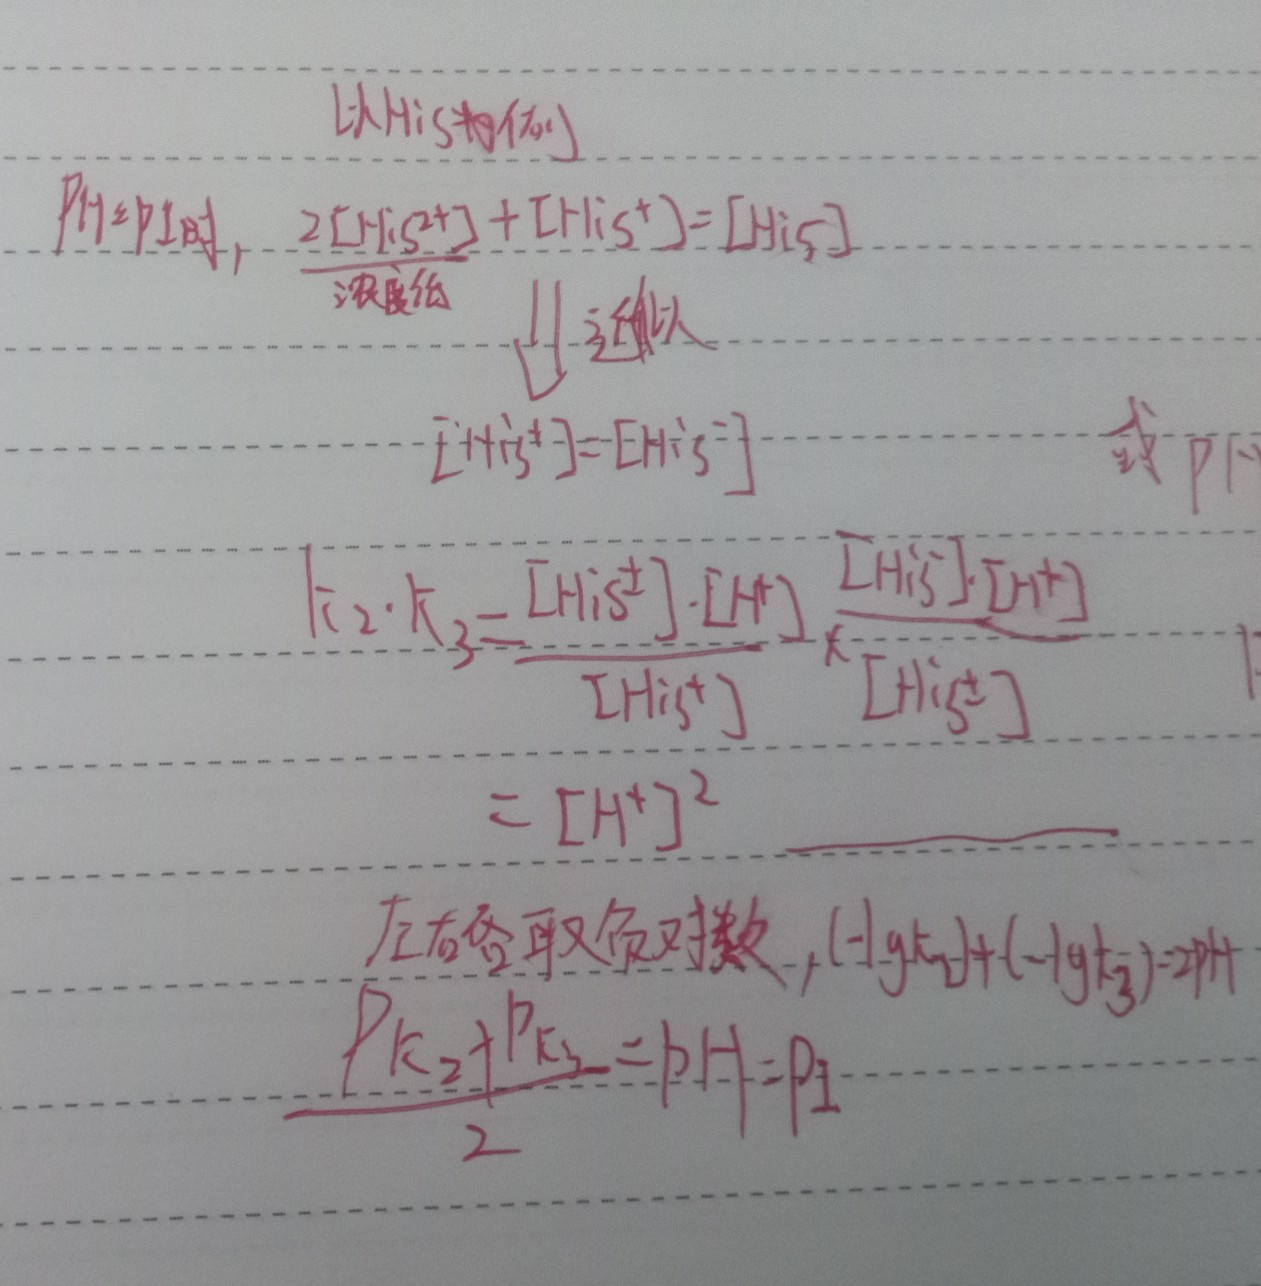 以His为例
PH=pI时, 2[His²⁺]+[His⁺]=[His]
浓度低
近似
[His⁺]=[His⁻]
或 PH
k₂·k₃=[His±]·[H⁺]/[His⁺]×[His⁻]·[H⁺]/[His±]
=[H⁺]²
左右各取负对数,(-lgk₂)+(-lgk₃)=2PH
(Pk₂+Pk₃)/2=pH=pI